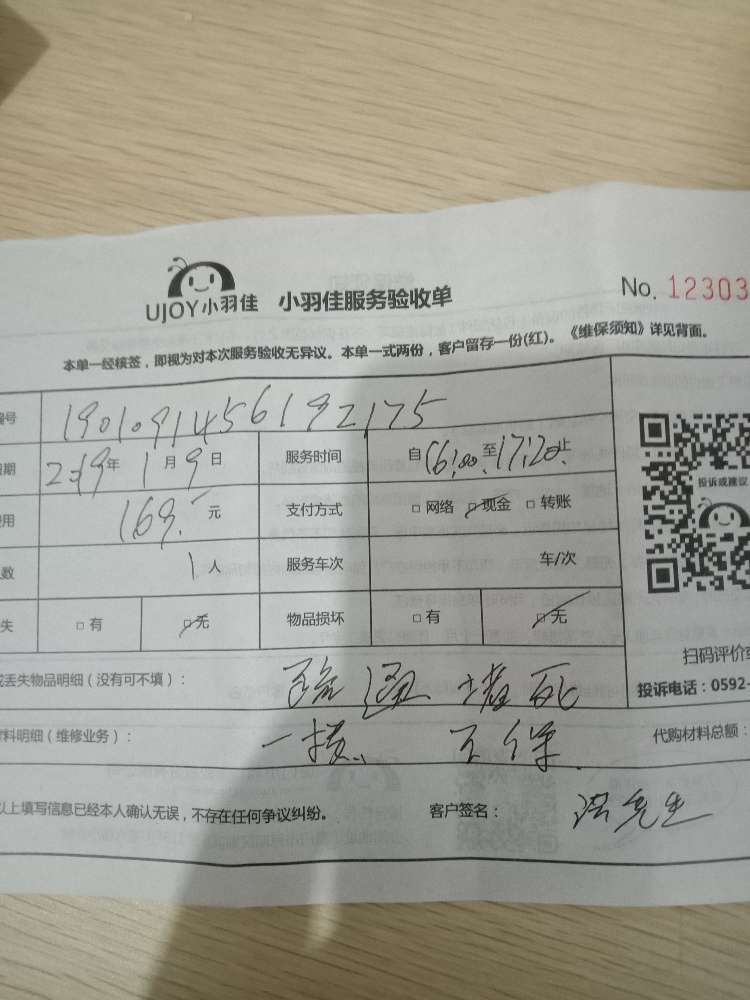 UJOY小羽佳 小羽佳服务验收单 No. 12303
本单一经核签，即视为对本次服务验收无异议。本单一式两份，客户留存一份(红)。《维保须知》详见背面。
编号 1901091456192175
日期 2019年 1月 9日 服务时间 自 16:00 至 17:20 止
费用 169.- 元 支付方式 □ 网络 □ 现金 □ 转账
人数 1 人 服务车次 车/次
失 □ 有 □ 无 物品损坏 □ 有 □ 无
投诉或建议
扫码评价
或丢失物品明细（没有可不填）： 堵死
投诉电话：0592-
材料明细（维修业务）： 一楼、 不保
代购材料总额：
以上填写信息已经本人确认无误，不存在任何争议纠纷。 客户签名： 洪先生